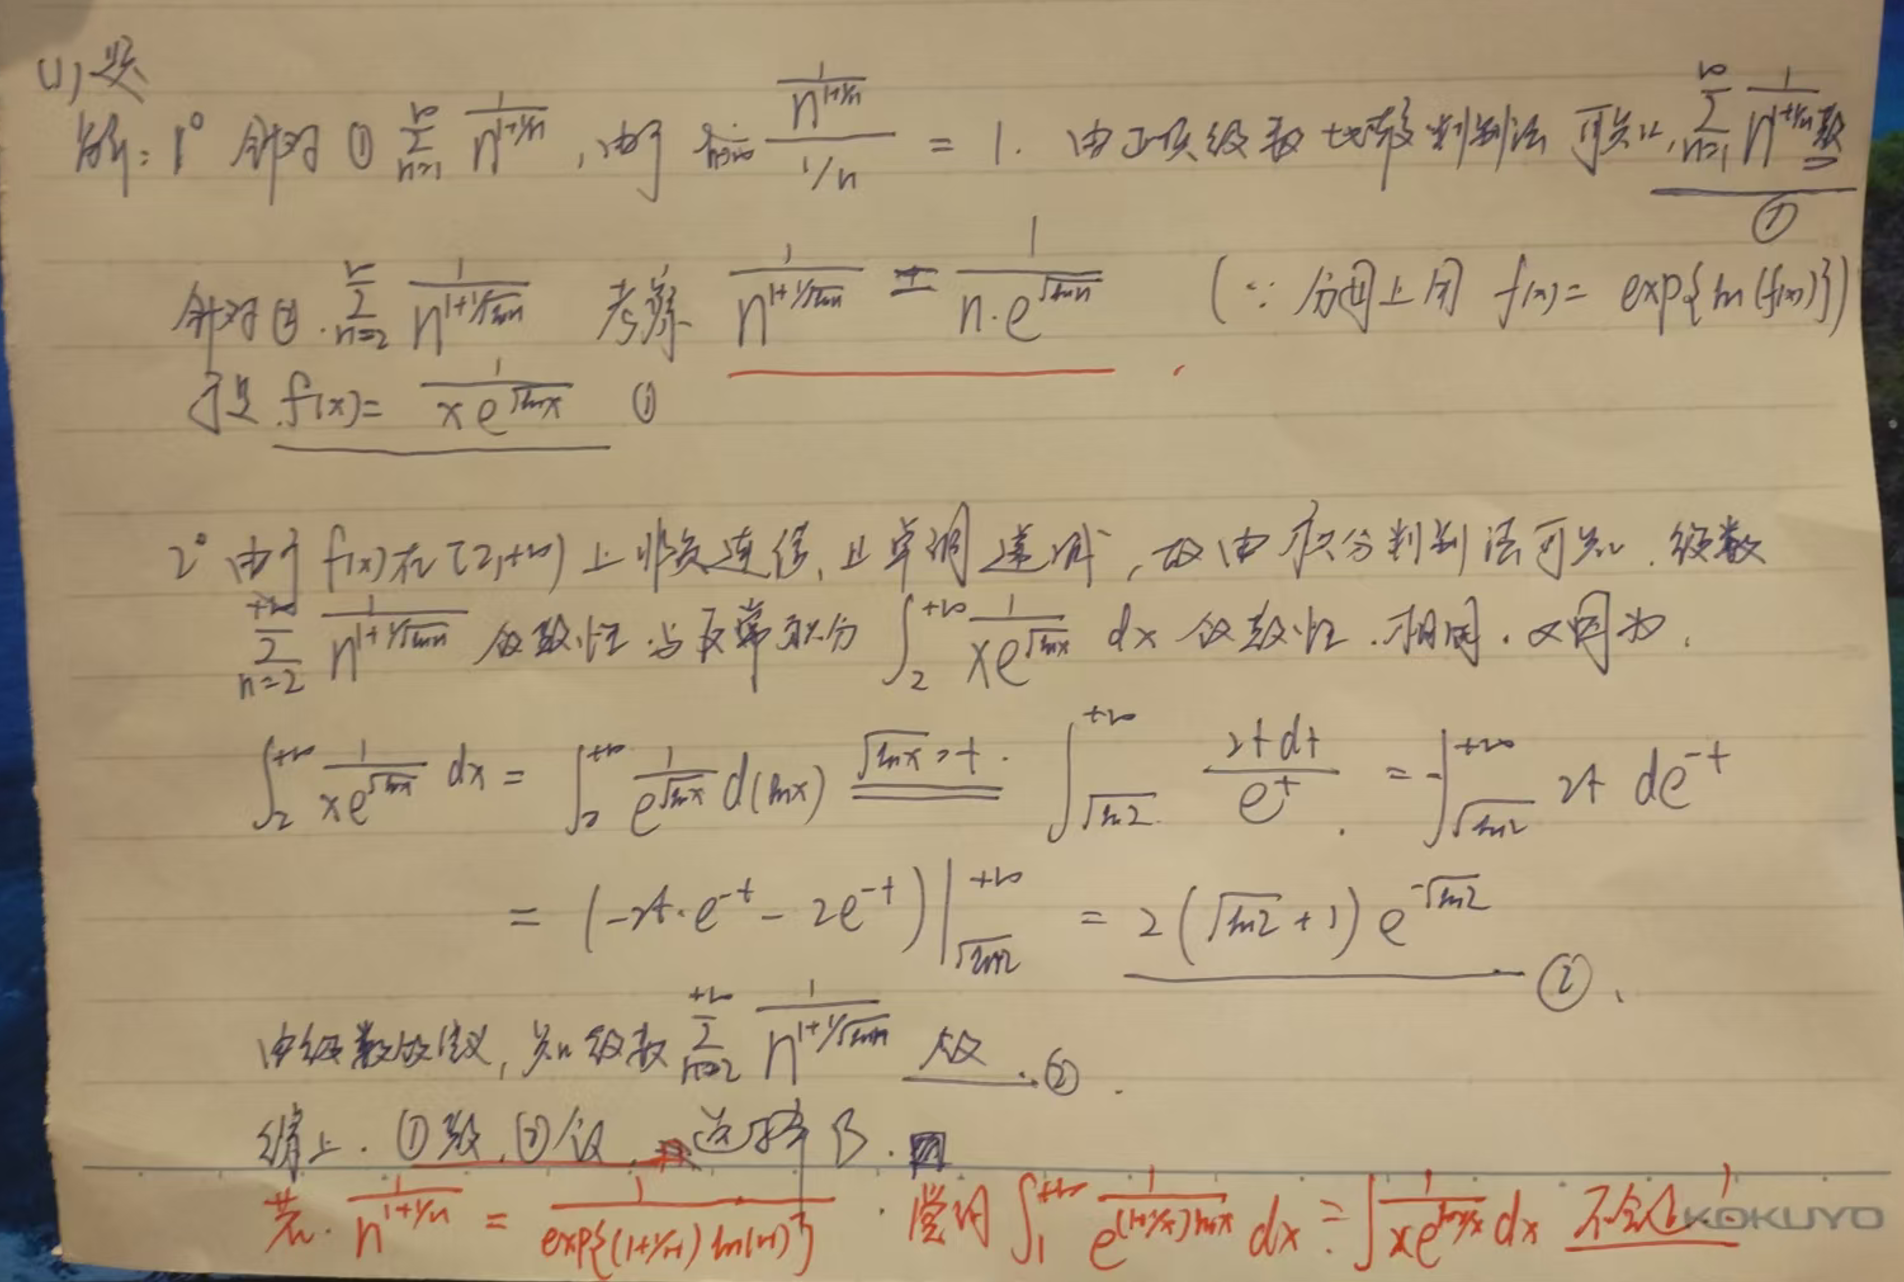 (1)题
解：1° 针对 ① ∑_{n=1}^{∞} 1/n^{1+1/n}，由于 lim_{n→∞} (1/n^{1+1/n})/(1/n) = 1. 由正项级数比较判别法可知, ∑_{n=1}^{∞} 1/n^{1+1/n} 散 ①
针对②. ∑_{n=2}^{∞} 1/n^{1+1/√ln n} 考察 1/n^{1+1/√ln n} = 1/(n·e^{√ln n}) (∵ 分母上用 f(x) = exp{ln(f(x))})
于是 f(x) = 1/(x e^{√ln x}) ①
2° 由于 f(x) 在 [2,+∞) 上非负连续，且单调递减，故由积分判别法可知. 级数
∑_{n=2}^{+∞} 1/n^{1+1/√ln n} 敛散性与反常积分 ∫_2^{+∞} 1/(x e^{√ln x}) dx 敛散性相同. 又因为.
∫_2^{+∞} 1/(x e^{√ln x}) dx = ∫_2^{+∞} 1/e^{√ln x} d(ln x) √ln x = t. ∫_{√ln2}^{+∞} 2t dt/e^t = -∫_{√ln2}^{+∞} 2t de^{-t}
= (-2t·e^{-t} - 2e^{-t})|_{√ln2}^{+∞} = 2(√ln2 + 1) e^{-√ln2} ②.
由级数的定义，知级数 ∑_{n=2}^{+∞} 1/n^{1+1/√ln n} 敛. ②.
综上. ①散, ②敛. 选择 B.
若. 1/n^{1+1/n} = 1/exp{(1+1/n) ln(n)}. 尝用 ∫_1^{+∞} 1/e^{(1+1/x) ln x} dx = ∫ 1/(x e^{ln x/x}) dx 不会
KOKUYO